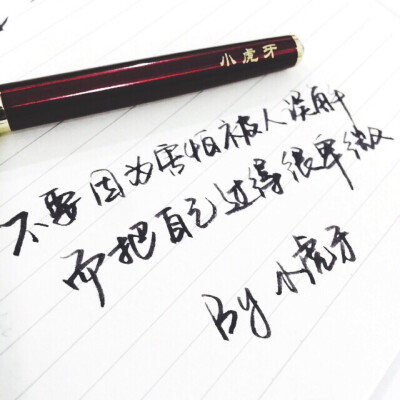 小虎牙
不要因为害怕被人误解
而把自己过得很卑微
By 小虎牙